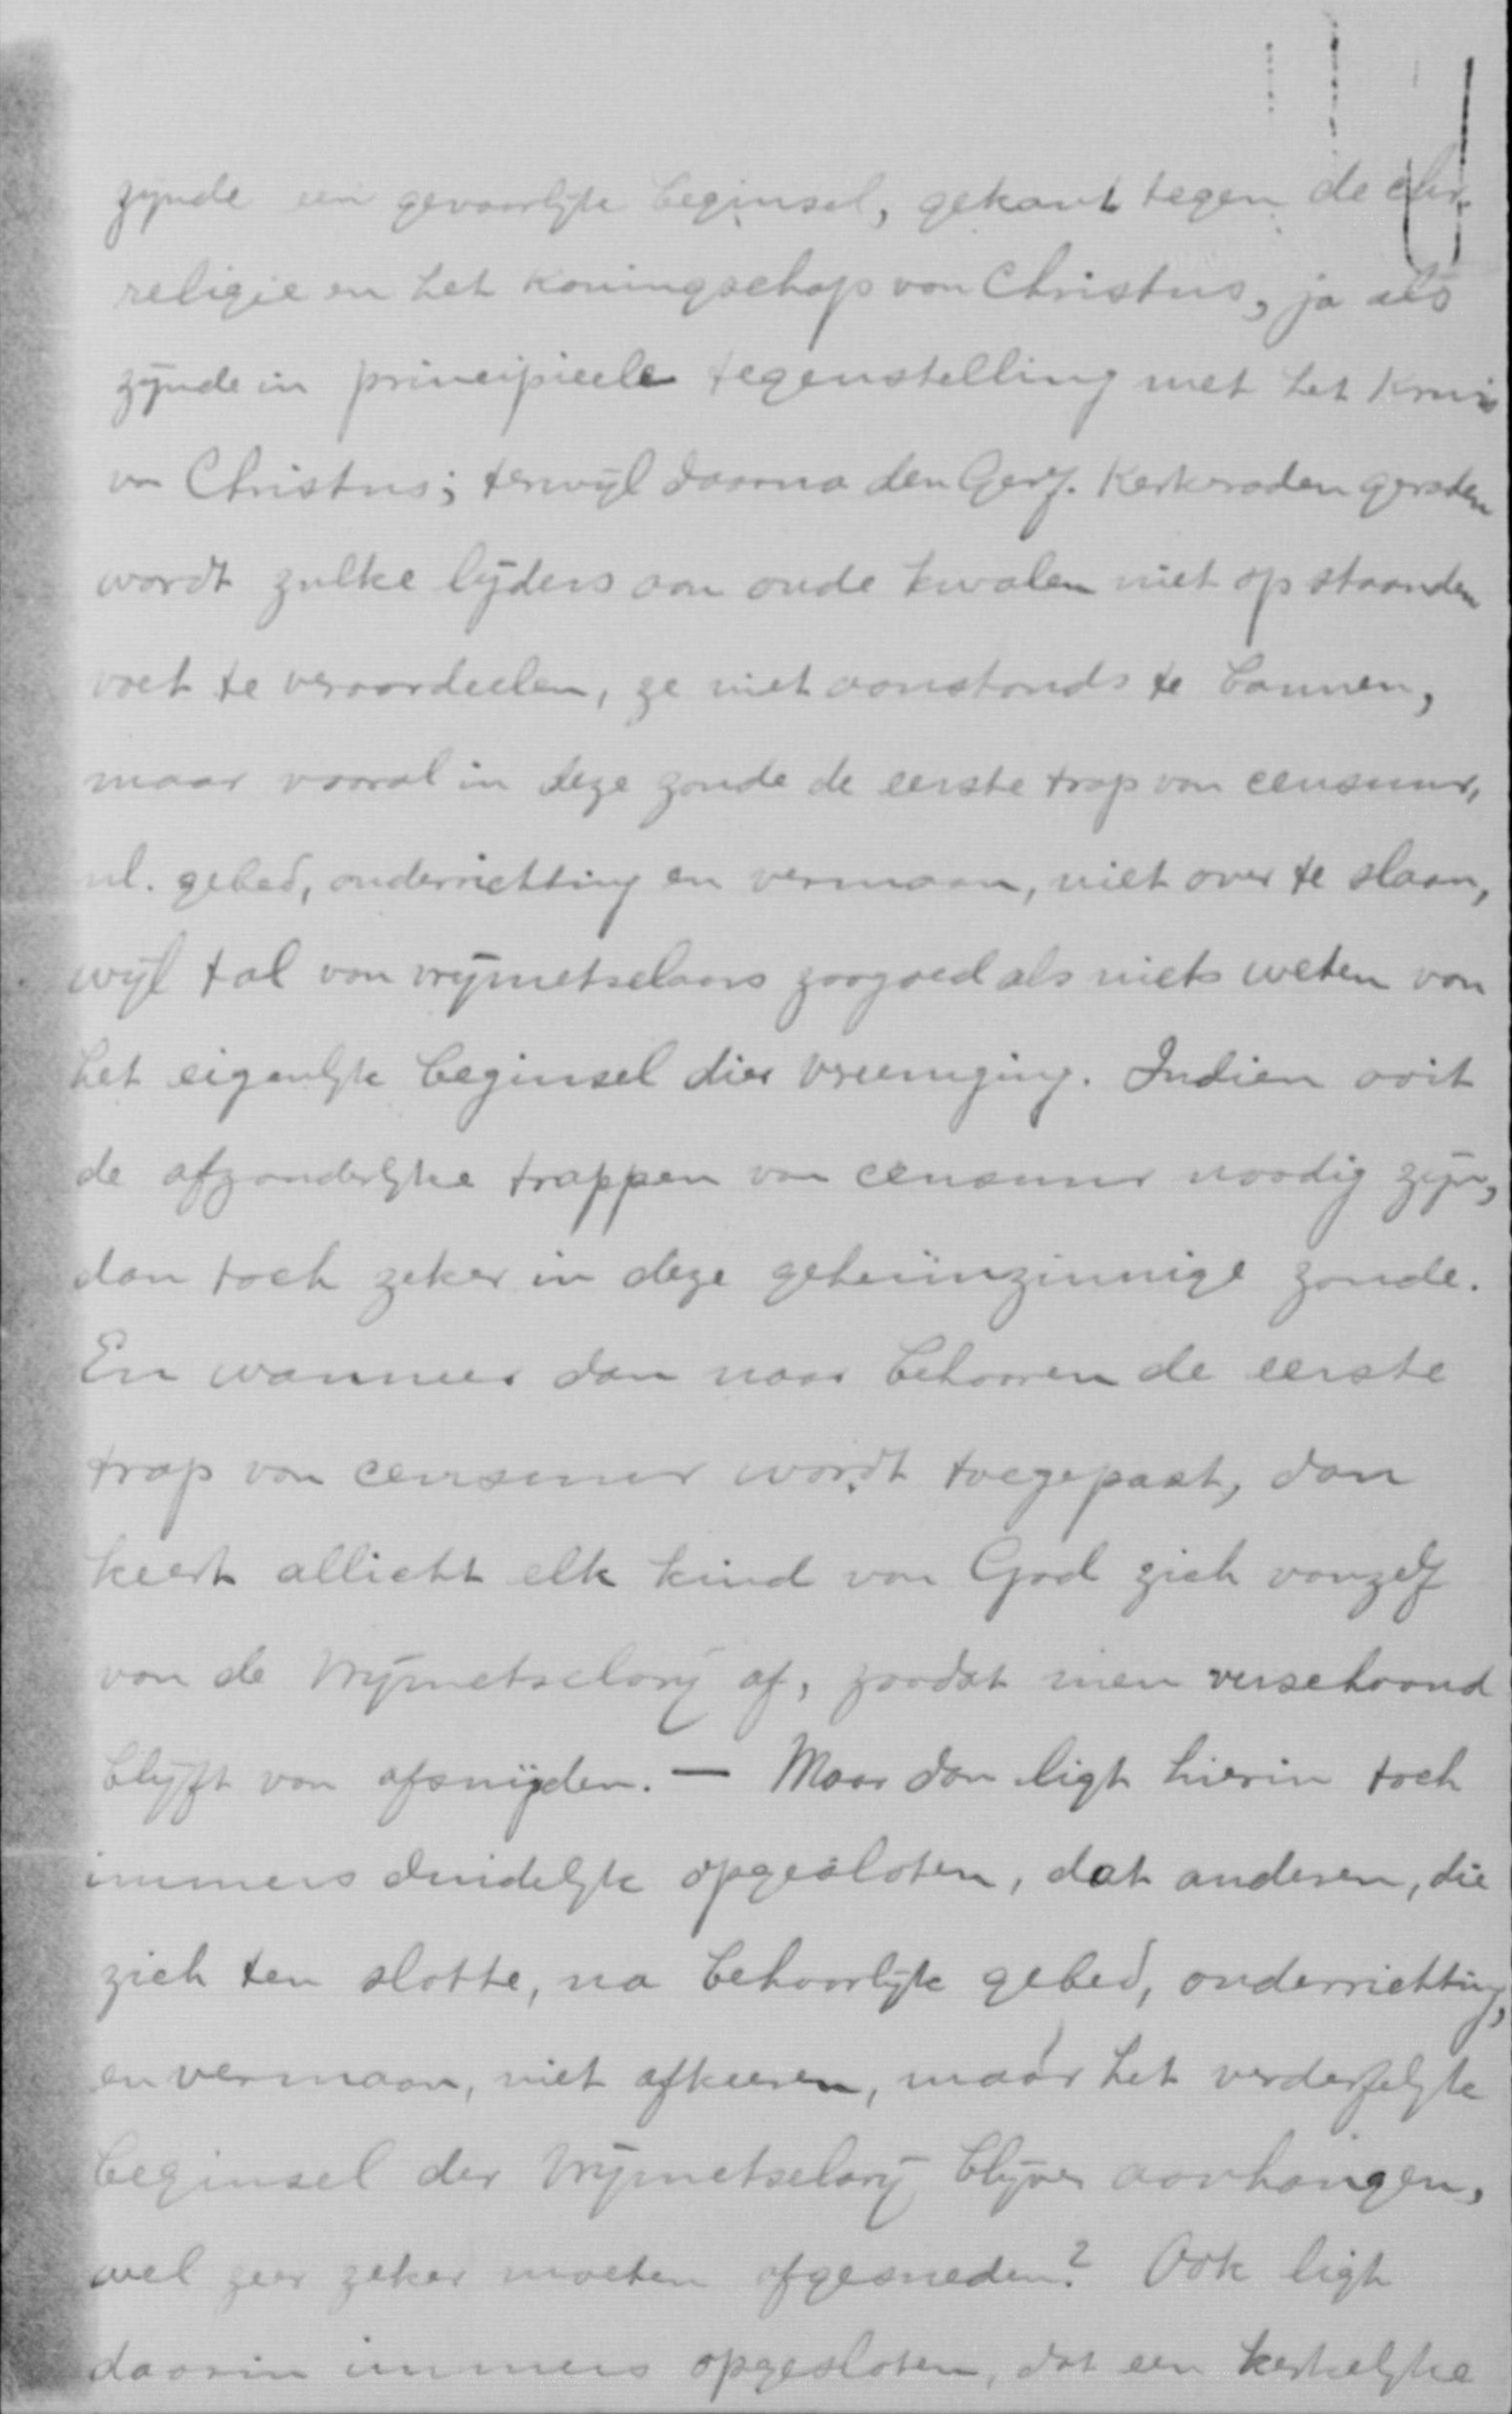 zijnde een gevaarlijke beginsel, gekant tegen de chr.
religie en het koningschap van Christus, ja als
zijnde in principieele tegenstelling met het Kruis
van Christus; terwijl daarna den Geref. Kerkeraden geraden
wordt zulke lijders aan oude kwalen niet op staanden
voet te veroordeelen, ze niet aanstonds te bannen,
maar vooral in deze zonde de eerste trap van censuur,
nl. gebed, onderrichting en vermaan, niet over te slaan,
wijl tal van vrijmetselaars zoogoed als niets weten van
het eigenlijke beginsel dier vereeniging. Indien ooit
de afzonderlijke trappen van censuur noodig zijn,
dan toch zeker in deze geheimzinnige zonde.
En wanneer dan naar behooren de eerste
trap van censuur wordt toegepast, dan
keert allicht elk kind van God zich vanzelf
van de Vrijmetselarij af, zoodat men verschoond
blijft van afsnijden. — Maar dan ligt hierin toch
immers duidelijk opgesloten, dat anderen, die
zich ten slotte, na behoorlijk gebed, onderrichting,
en vermaan, niet afkeeren, maar het verderfelijke
beginsel der Vrijmetselarij blijven aanhangen,
wel zeer zeker moeten afgesneden? Ook ligt
daarin immers opgesloten, dat een kerkelijke